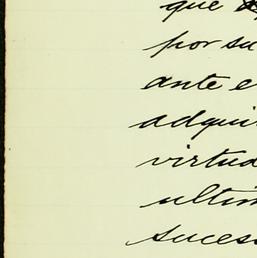 que
por su
ante e
adqui
virtud
ultim
suces